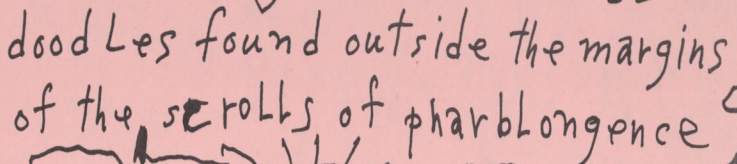 doodles found outside the margins
of the scrolls of pharblongence